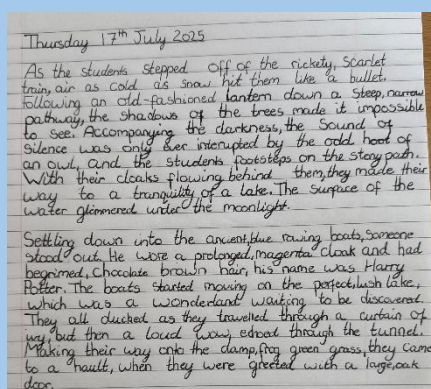 Thursday 17th July 2025
As the students stepped off of the rickety, scarlet
train, air as cold as snow hit them like a bullet.
Following an old-fashioned lantern down a steep, narrow
pathway, the shadows of the trees made it impossible
to see. Accompanying the darkness, the sound of
silence was only ever interupted by the odd hoot of
an owl, and the students footsteps on the stony path.
With their cloaks flowing behind them, they made their
way to a tranquility of a lake. The surface of the
water glimmered under the moonlight.
Settling down into the ancient, blue rowing boats, someone
stood out. He wore a prolonged, magenta cloak and had
begrimed, chocolate brown hair, his name was Harry
Potter. The boats started moving on the perfect, lush lake,
which was a wonderland waiting to be discovered.
They all ducked as they travelled through a curtain of
ivy, but then a loud wow, echoed through the tunnel.
Making their way onto the damp, frog green grass, they came
to a hault, when they were greeted with a large, oak
door.